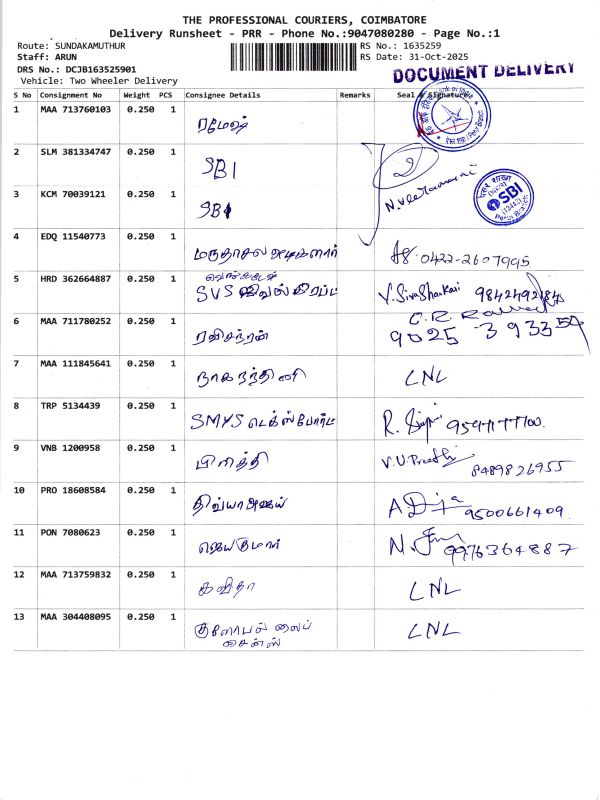 THE PROFESSIONAL COURIERS, COIMBATORE
Delivery Runsheet - PRR - Phone No.:9047080280 - Page No.:1
Route: SUNDAKAMUTHUR RS No.: 1635259
Staff: ARUN RS Date: 31-Oct-2025
DRS No.: DCJB163525901
Vehicle: Two Wheeler Delivery
DOCUMENT DELIVERY
S No Consignment No Weight PCS Consignee Details Remarks Seal & Signature
1 MAA 713760103 0.250 1 ரமேஷ்
2 SLM 381334747 0.250 1 SBI
3 KCM 70039121 0.250 1 SBI
SBI
4 EDQ 11540773 0.250 1 மருதாசல அடிகளார் 0422-2607995
5 HRD 362664887 0.250 1 SVS V. Sivasharkari 9842492184
6 MAA 711780252 0.250 1 ரவிசந்ரன் 9025 39335
7 MAA 111845641 0.250 1 நாகநந்தினி LNL
8 TRP 5134439 0.250 1 SMYS டெக்ஸ்போர்ட் R.
9 VNB 1200958 0.250 1 பிரீத்தி V.U.Preethi 8489826955
10 PRO 18608584 0.250 1 திவ்யா அஜய் 9500661409
11 PON 7080623 0.250 1 ஜெயகுமார் N. 9976364887
12 MAA 713759832 0.250 1 கவிதா LNL
13 MAA 304408095 0.250 1 குளோபல் லைப் LNL
சைன்ஸ்